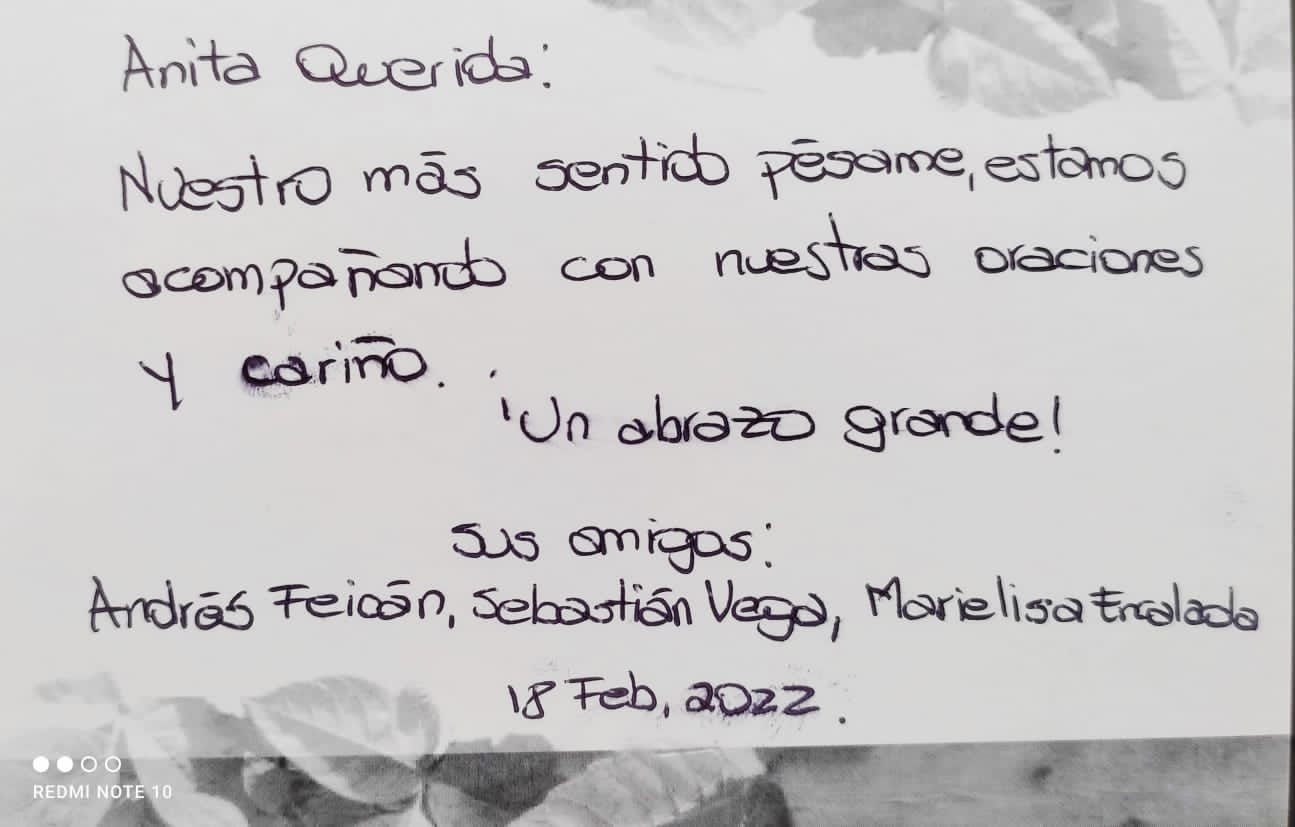 Anita Querida:
Nuestro más sentido pésame, estamos
acompañando con nuestras oraciones
y cariño.
¡Un abrazo grande!
Sus amigos:
Andrés Feicán, Sebastián Vega, Marielisa Encalada
18 Feb, 2022.
REDMI NOTE 10